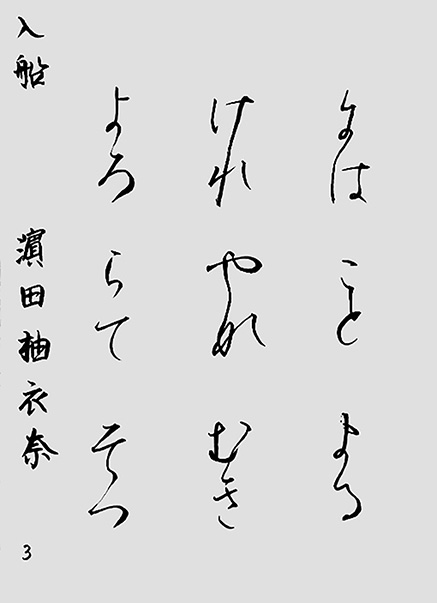 にはことまる
けれやぬむき
よろらてそつ
入船 濱田柚衣奈
3